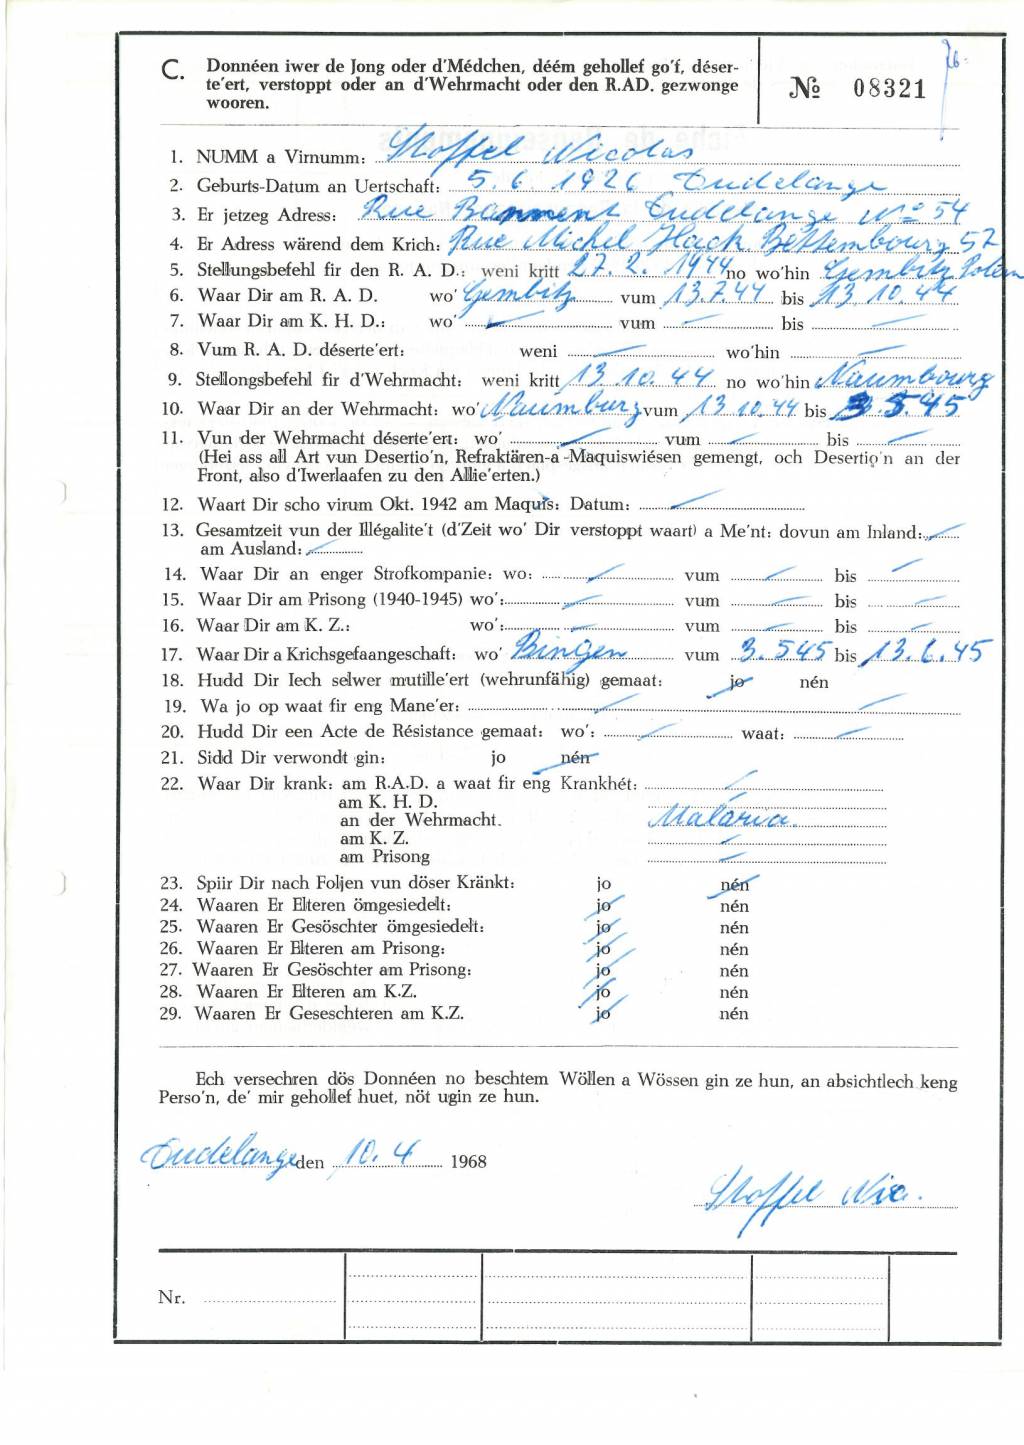 C. Donnéen iwer de Jong oder d'Médchen, déém gehollef go'f, déser-
te'ert, verstoppt oder an d'Wehrmacht oder den R.AD. gezwonge
wooren.
№ 08321
1. NUMM a Virnumm: Stoffel Nicolas
2. Geburts-Datum an Uertschaft: 5. 6. 1926 Dudelange
3. Er jetzeg Adress: Rue Dudelange No 54
4. Er Adress wärend dem Krich: Rue Michel Hack Bettembourg 57
5. Stellungsbefehl fir den R. A. D.: weni kritt 27. 2. 1944 no wo'hin Gembitz Polen
6. Waar Dir am R. A. D. wo' Gembitz vum 13.7.44 bis 13.10.44
7. Waar Dir am K. H. D.: wo' — vum — bis —
8. Vum R. A. D. déserte'ert: weni — wo'hin —
9. Stellongsbefehl fir d'Wehrmacht: weni kritt 13.10.44 no wo'hin Naumbourg
10. Waar Dir an der Wehrmacht: wo' Naumburg vum 13.10.44 bis 3.5.45
11. Vun der Wehrmacht déserte'ert: wo' — vum — bis —
(Hei ass all Art vun Desertio'n, Refraktären-a -Maquiswiésen gemengt, och Desertio'n an der
Front, also d'Iwerlaafen zu den Allie'erten.)
12. Waart Dir scho virum Okt. 1942 am Maquis: Datum: —
13. Gesamtzeit vun der Illégalite't (d'Zeit wo' Dir verstoppt waart) a Me'nt: dovun am Inland: —
am Ausland: —
14. Waar Dir an enger Strofkompanie: wo: — vum — bis —
15. Waar Dir am Prisong (1940-1945) wo': — vum — bis —
16. Waar Dir am K. Z.: wo': — vum — bis —
17. Waar Dir a Krichsgefaangeschaft: wo' Bingen vum 3.5.45 bis 13.6.45
18. Hudd Dir Iech selwer mutille'ert (wehrunfähig) gemaat: jo nén
19. Wa jo op waat fir eng Mane'er: — —
20. Hudd Dir een Acte de Résistance gemaat: wo': — waat: —
21. Sidd Dir verwondt gin: jo nén
22. Waar Dir krank: am R.A.D. a waat fir eng Krankhét: —
am K. H. D.
an der Wehrmacht. Malaria.
am K. Z. —
am Prisong —
23. Spiir Dir nach Foljen vun döser Kränkt: jo nén
24. Waaren Er Elteren ömgesiedelt: jo nén
25. Waaren Er Gesöschter ömgesiedelt: jo nén
26. Waaren Er Elteren am Prisong: jo nén
27. Waaren Er Gesöschter am Prisong: jo nén
28. Waaren Er Elteren am K.Z. jo nén
29. Waaren Er Geseschteren am K.Z. jo nén
Ech versechren dös Donnéen no beschtem Wöllen a Wössen gin ze hun, an absichtlech keng
Perso'n, de' mir gehollef huet, nöt ugin ze hun.
Dudelange den 10. 4 1968
Stoffel Nic.
Nr.